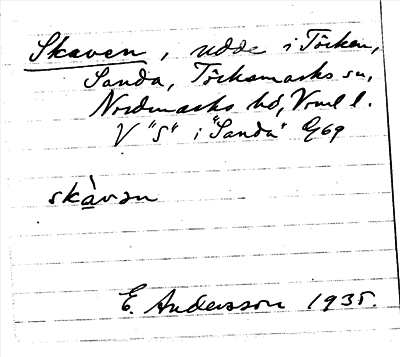 Skaven, udde i Törken,
Sanda, Töcksmarks sn,
Nordmarks hd, Vrml l.
V "S" i "Sanda" G69
skàvən
E. Andersson 1935.